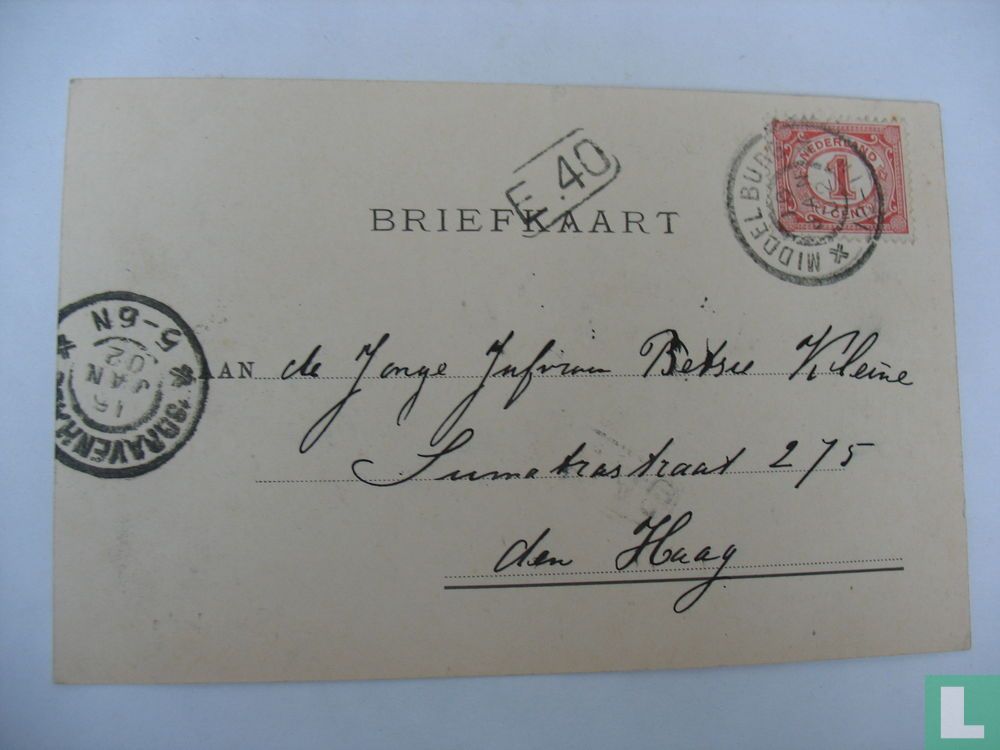 E. 40
NEDERLAND
1
1 CENT
MIDDELBURG
BRIEFKAART
5-6N
16
JAN
02
'SGRAVENHAGE
AAN de Jonge Jufvrouw Betsie Kleine
Sumatrastraat 275
den Haag
L